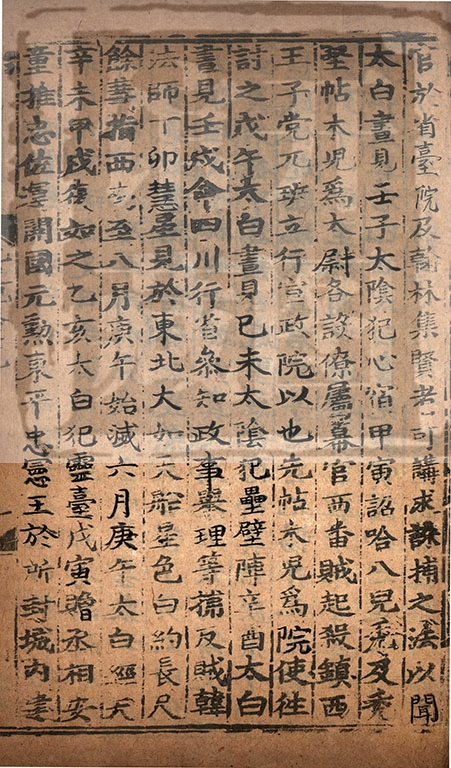 官於省臺院及翰林集賢者可講求誅捕之法以聞
太白晝見壬子太陰犯心宿甲寅詔哈八兒禿及禿
堅帖木兒爲太尉各設僚屬幕官西番賊起殺鎮西
王子党兀班立行宣政院以也先帖木兒爲院使往
討之戊午太白晝見已未太陰犯壘壁陣辛酉太白
晝見壬戌命四川行省參知政事舉理等捕反賊韓
法師丁卯慧星見於東北大如天船星色白約長尺
餘彗指西南至八月庚午始滅六月庚午太白經天
辛未甲戌復如之乙亥太白犯靈臺戊寅贈丞相安
童推忠佐運開國元勲東平忠憲王於所封城內建